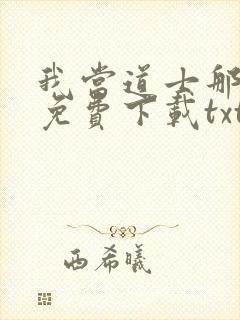 我當道士那
免費下載txt
西希曦